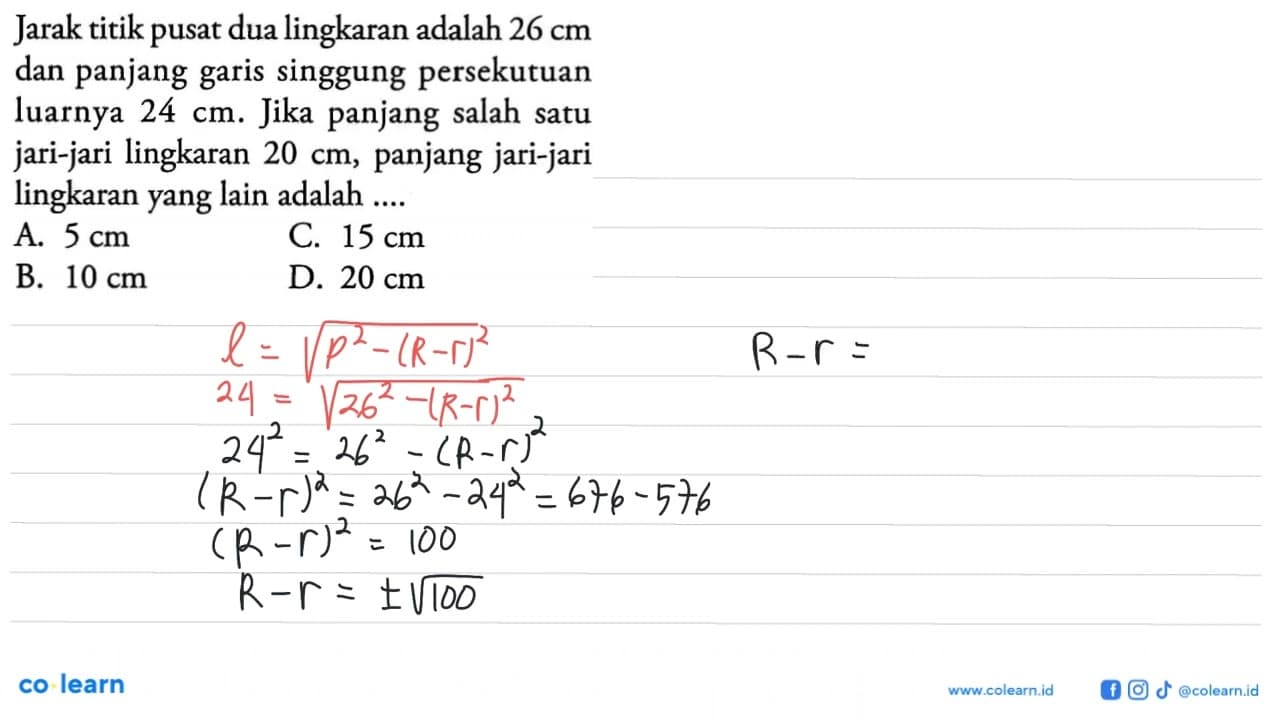 Jarak titik pusat dua lingkaran adalah 26 cm
dan panjang garis singgung persekutuan
luarnya 24 cm. Jika panjang salah satu
jari-jari lingkaran 20 cm, panjang jari-jari
lingkaran yang lain adalah ....
A. 5 cm C. 15 cm
B. 10 cm D. 20 cm
l = √(p² - (R-r)²)
24 = √(26² - (R-r)²)
24² = 26² - (R-r)²
(R-r)² = 26² - 24² = 676 - 576
(R-r)² = 100
R-r = ±√100
R-r =
co learn
www.colearn.id
@colearn.id